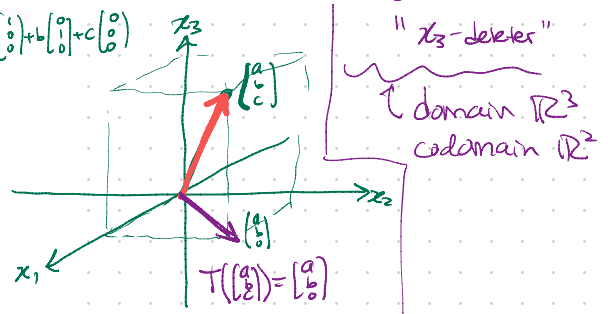 [1 0 0]+b[0 1 0]+c[0 0 0]
x₃
(a b c)
x₂
(a b 0)
x₁
T((a b c))=[a b 0]
"x₃-deleter"
domain ℝ³
codomain ℝ²